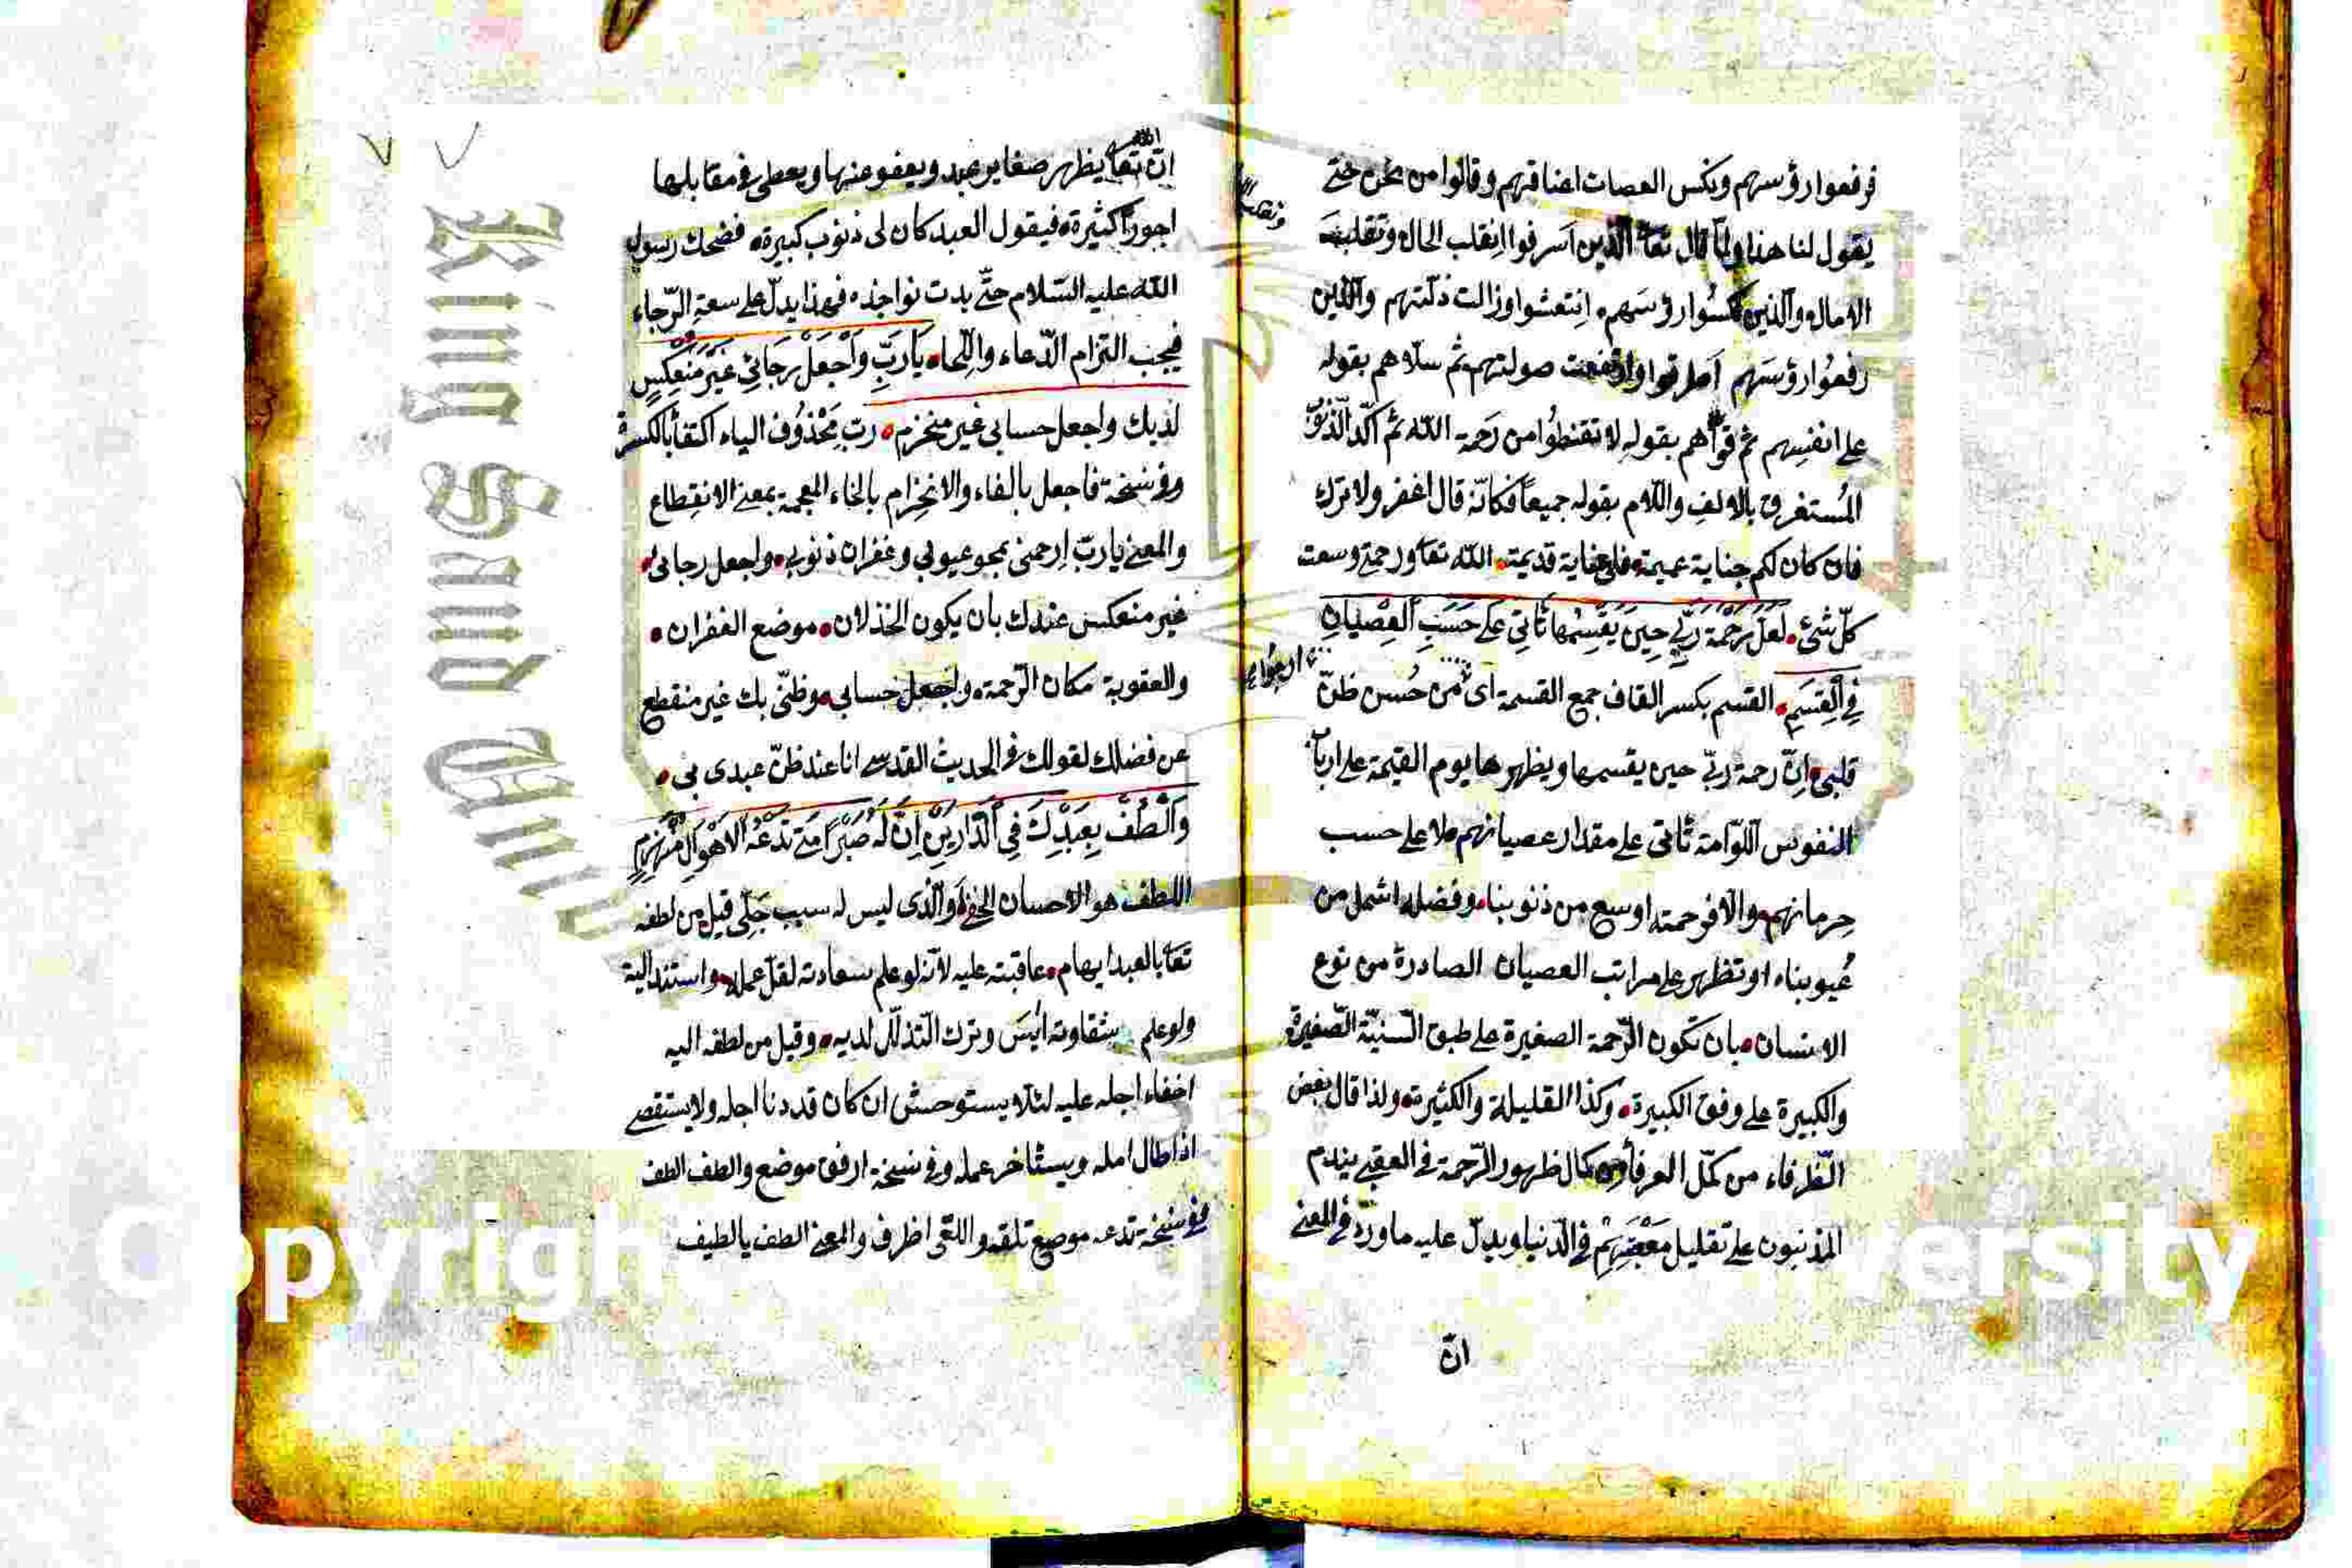 فرفعوا رؤسهم ونكس العصات اعناقهم وقالوا من نحن حتى
يقول لنا هذا ولما قال تعا الذين اسرفوا انقلب الحال وتقلبت
الامال والذين نكسوا رؤسهم انتعشوا وزالت ذلتهم والذين
رفعوا رؤسهم اطرقوا وارتفعت صولتهم ثم سلاهم بقوله
على انفسهم ثم قواهم بقوله لا تقنطوا من رحمة الله ثم اكد الذنوب
المستغرق بالالف واللام بقوله جميعا فكانه قال اغفر ولا اترك
فان كان لكم جناية عميمة فلي عناية قديمة الله تعا ورحمتي وسعت
كل شئ لعل رحمة ربي حين يقسمها تاتي على حسب العصيان
في القسم القسم بكسر القاف جمع القسمة اى من حسن ظن
قلبى ان رحمة ربي حين يقسمها ويظهرها يوم القيمة على ارباب
النفوس اللوامة تاتى على مقدار عصيانهم لا على حسب
حرمانهم والا فرحمته اوسع من ذنوبنا وفضله اشمل من
عيوبنا او تظهر على مراتب العصيان الصادرة من نوع
الانسان بان تكون الرحمة الصغيرة على طبق السيئة الصغيرة
والكبيرة على وفق الكبيرة وكذا القليلة والكثيرة ولذا قال بعض
الظرفاء من كمل العرفاء من كمال ظهور الرحمة في العقبى يندم
المذنبون على تقليل معصيتهم في الدنيا ويدل عليه ما ورد في المعنى
ان
ان الله تعا يظهر صغاير عبد ويعفو عنها ويعطى في مقابلها
اجورا كثيرة فيقول العبد كان لى ذنوب كبيرة فضحك رسول
الله عليه السلام حتى بدت نواجذه فهذا يدل على سعة الرجاء
فيجب التزام الدعاء والالتجاء يا رب واجعل رجائي غير منعكس
لديك واجعل حسابى غير منخزم رب محذوف الياء اكتفاء بالكسرة
وفي نسخة فاجعل بالفاء والانخزام بالخاء المعجمة بمعنى الانقطاع
والمعنى يا رب ارحمني بمحو عيوبي وغفران ذنوبي واجعل رجائى
غير منعكس عندك بان يكون الخذلان موضع الغفران
والعقوبة مكان الرحمة واجعل حسابي وظني بك غير منقطع
عن فضلك لقولك في الحديث القدسي انا عند ظن عبدى بى
والطف بعبدك في الدارين ان له صبرا متى تدعه الاهوال ينهزم
اللطف هو الاحسان الخفي والذى ليس له سبب جلي قيل من لطفه
تعا بالعبد ابهام عاقبته عليه لانه لو علم سعادته لقل عمله واستند اليه
ولو علم شقاوته ايس وترك التذلل لديه وقيل من لطفه اليه
اخفاء اجله عليه لئلا يستوحش ان كان قد دنا اجله ولا يستقصى
اذا طال امله ويستأخر عمله وفي نسخة ارفق موضع والطف الطف
وفي نسخة تدعه موضع تلقه واللقى اظرف والمعنى الطف يا لطيف
King Saud Univ
Copyrigh
ersity